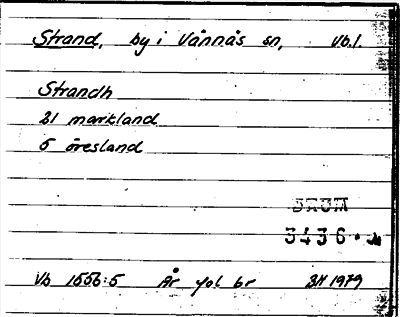 Strand, by i Vännäs sn, Vb.l.
Strandh
21 markland
5 öresland
DAUM
3436
Vb 1556:5 År fol br 1979